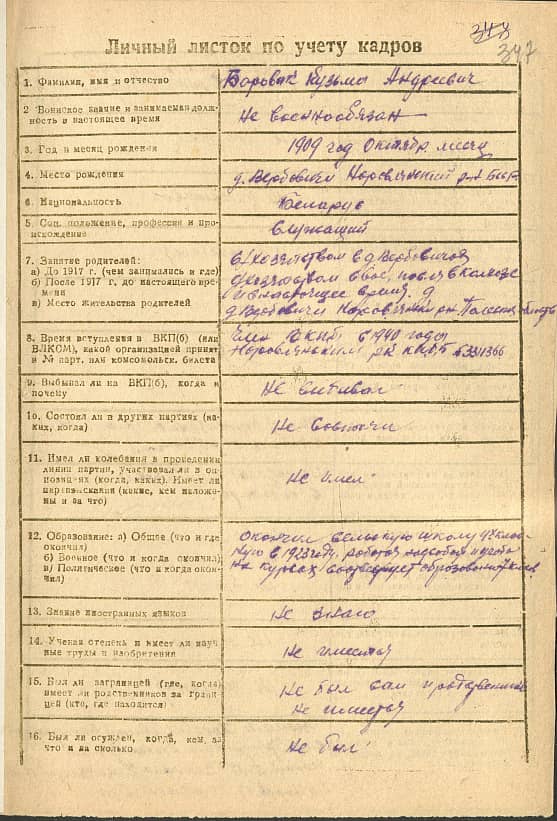 348
347
Личный листок по учету кадров
1. Фамилия, имя и отчество
Боровик Кузьма Андреевич
2 Воинское звание и занимаемая долж-
ность в настоящее время
Не военнообязан
3. Год и месяц рождения
1909 год Октябр. месяц
4. Место рождения
д. Вербовичи Наровлянский р-н БССР
4. Национальность
Беларус
5. Соц. положение, профессия и про-
исхождение
Служащий
7. Занятие родителей:
а) До 1917 г. (чем занимались и где)
б) После 1917 г. до настоящего вре-
мени
в) Место жительства родителей
С/хозяйством в д Вербовичах
С/хозяйством после в колхозе
и в настоящее время. д
д Вербовичи Наровлянский р-н Полесск. область
8. Время вступления в ВКП(б) (или
ВЛКСМ), какой организацией принят
и № парт. или комсомольск. билета
Член ВКПб с 1940 года
Наровлянским РК КПбБ
9. Выбывал ли из ВКП(б), когда и
почему
Не выбивал
10. Состоял ли в других партиях (ка-
ких, когда)
Не
11. Имел ли колебания в проведении
линии партии, участвовал ли в оп-
позициях (когда, каких). Имеет ли
партвзыскания (какие, кем наложе-
ны и за что)
Не имел
12. Образование: а) Общее (что и где
окончил)
б) Военное (что и когда окончил)
в) Политическое (что и когда окон-
чил)
Окончил сельскую школу 4х клас-
ную в 1923 году. работая над собой и учоба
на курсах
13. Знание иностранных языков
Не знаю
14. Ученая степень и имеет ли науч-
ные труды и изобретения
Не имеется
15. Был ли заграницей (где, когда)
имеет ли родственников за грани-
цей (кто, где находится)
Не был сам и родственников
не имеется
16. Был ли осужден, когда, кем, за
что и на сколько
Не был